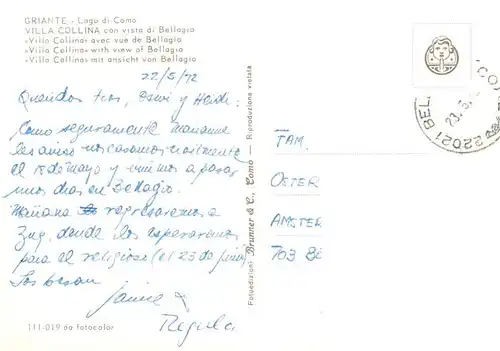 GRIANTE - Lago di Como
VILLA COLLINA con vista di Bellagio
«Villa Collina» avec vue de Bellagio
«Villa Collina» with view of Bellagio
«Villa Collina» mit ansicht von Bellagio
22/5/72
Queridos tios, y Heidi:
Como seguramente Marianne
les aviso nos casamos civilmente
el 18 de mayo y vinimos a pasar
unos dias en Bellagio.
Mañana regresaremos a
Zug, donde los esperaremos
para el religioso (el 23 de junio)
Los besan
Jaime y
Regula
111-019 da fotocolor
Fotoedizioni Brunner & C., Como — Riproduzione vietata
22021 BEL
23.5.
FAM.
OSTER
AMSTER